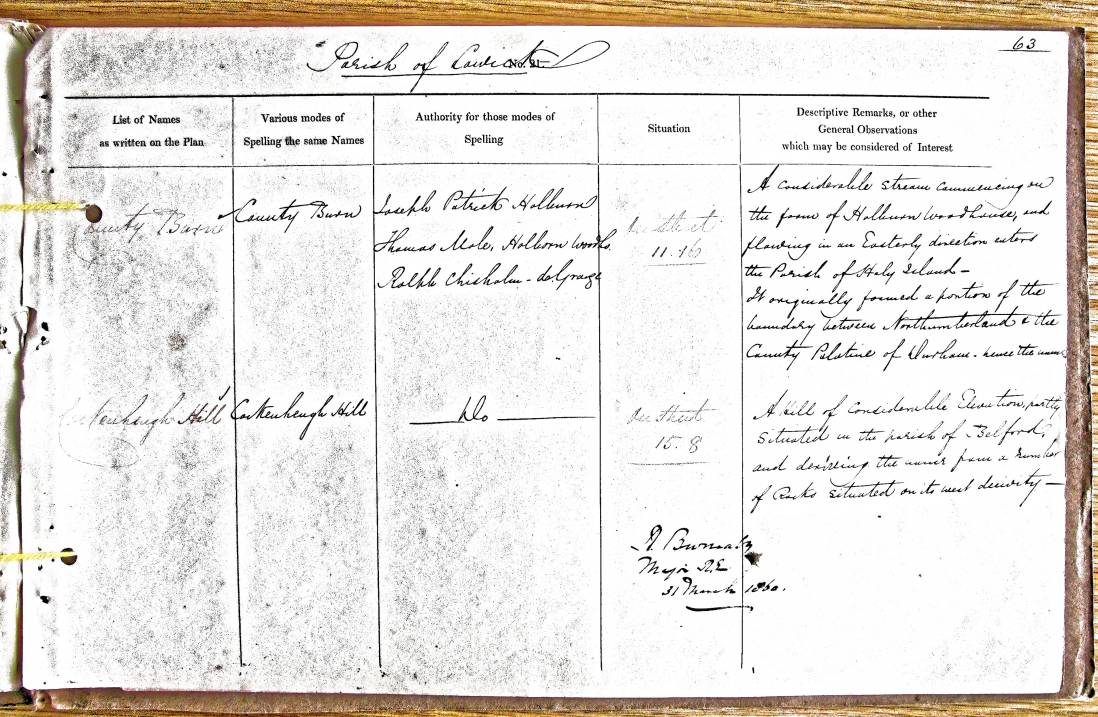 63
Parish of Lowick
No. 21
List of Names
as written on the Plan
Various modes of
Spelling the same Names
Authority for those modes of
Spelling
Situation
Descriptive Remarks, or other
General Observations
which may be considered of Interest
County Burn
County Burn
Joseph Patrick Holburn
Thomas Mole, Holborn Woodhs.
Ralph Chisholm - do. Grange
On Sheet
11. 16
A considerable stream commencing on
the farm of Holburn Woodhouse, and
flowing in an Easterly direction enters
the Parish of Holy Island -
It originally formed a portion of the
boundary between Northumberland & the
County Palatine of Durham - hence the name
Cockenheugh Hill
Cockenheugh Hill
Do
On Sheet
15. 8
A Hill of Considerable Elevation, partly
Situated in the parish of Belford,
and deriving the name from a number
of Rocks situated on its west declivity -
Burnaby
Major R.E
31 March 1860.